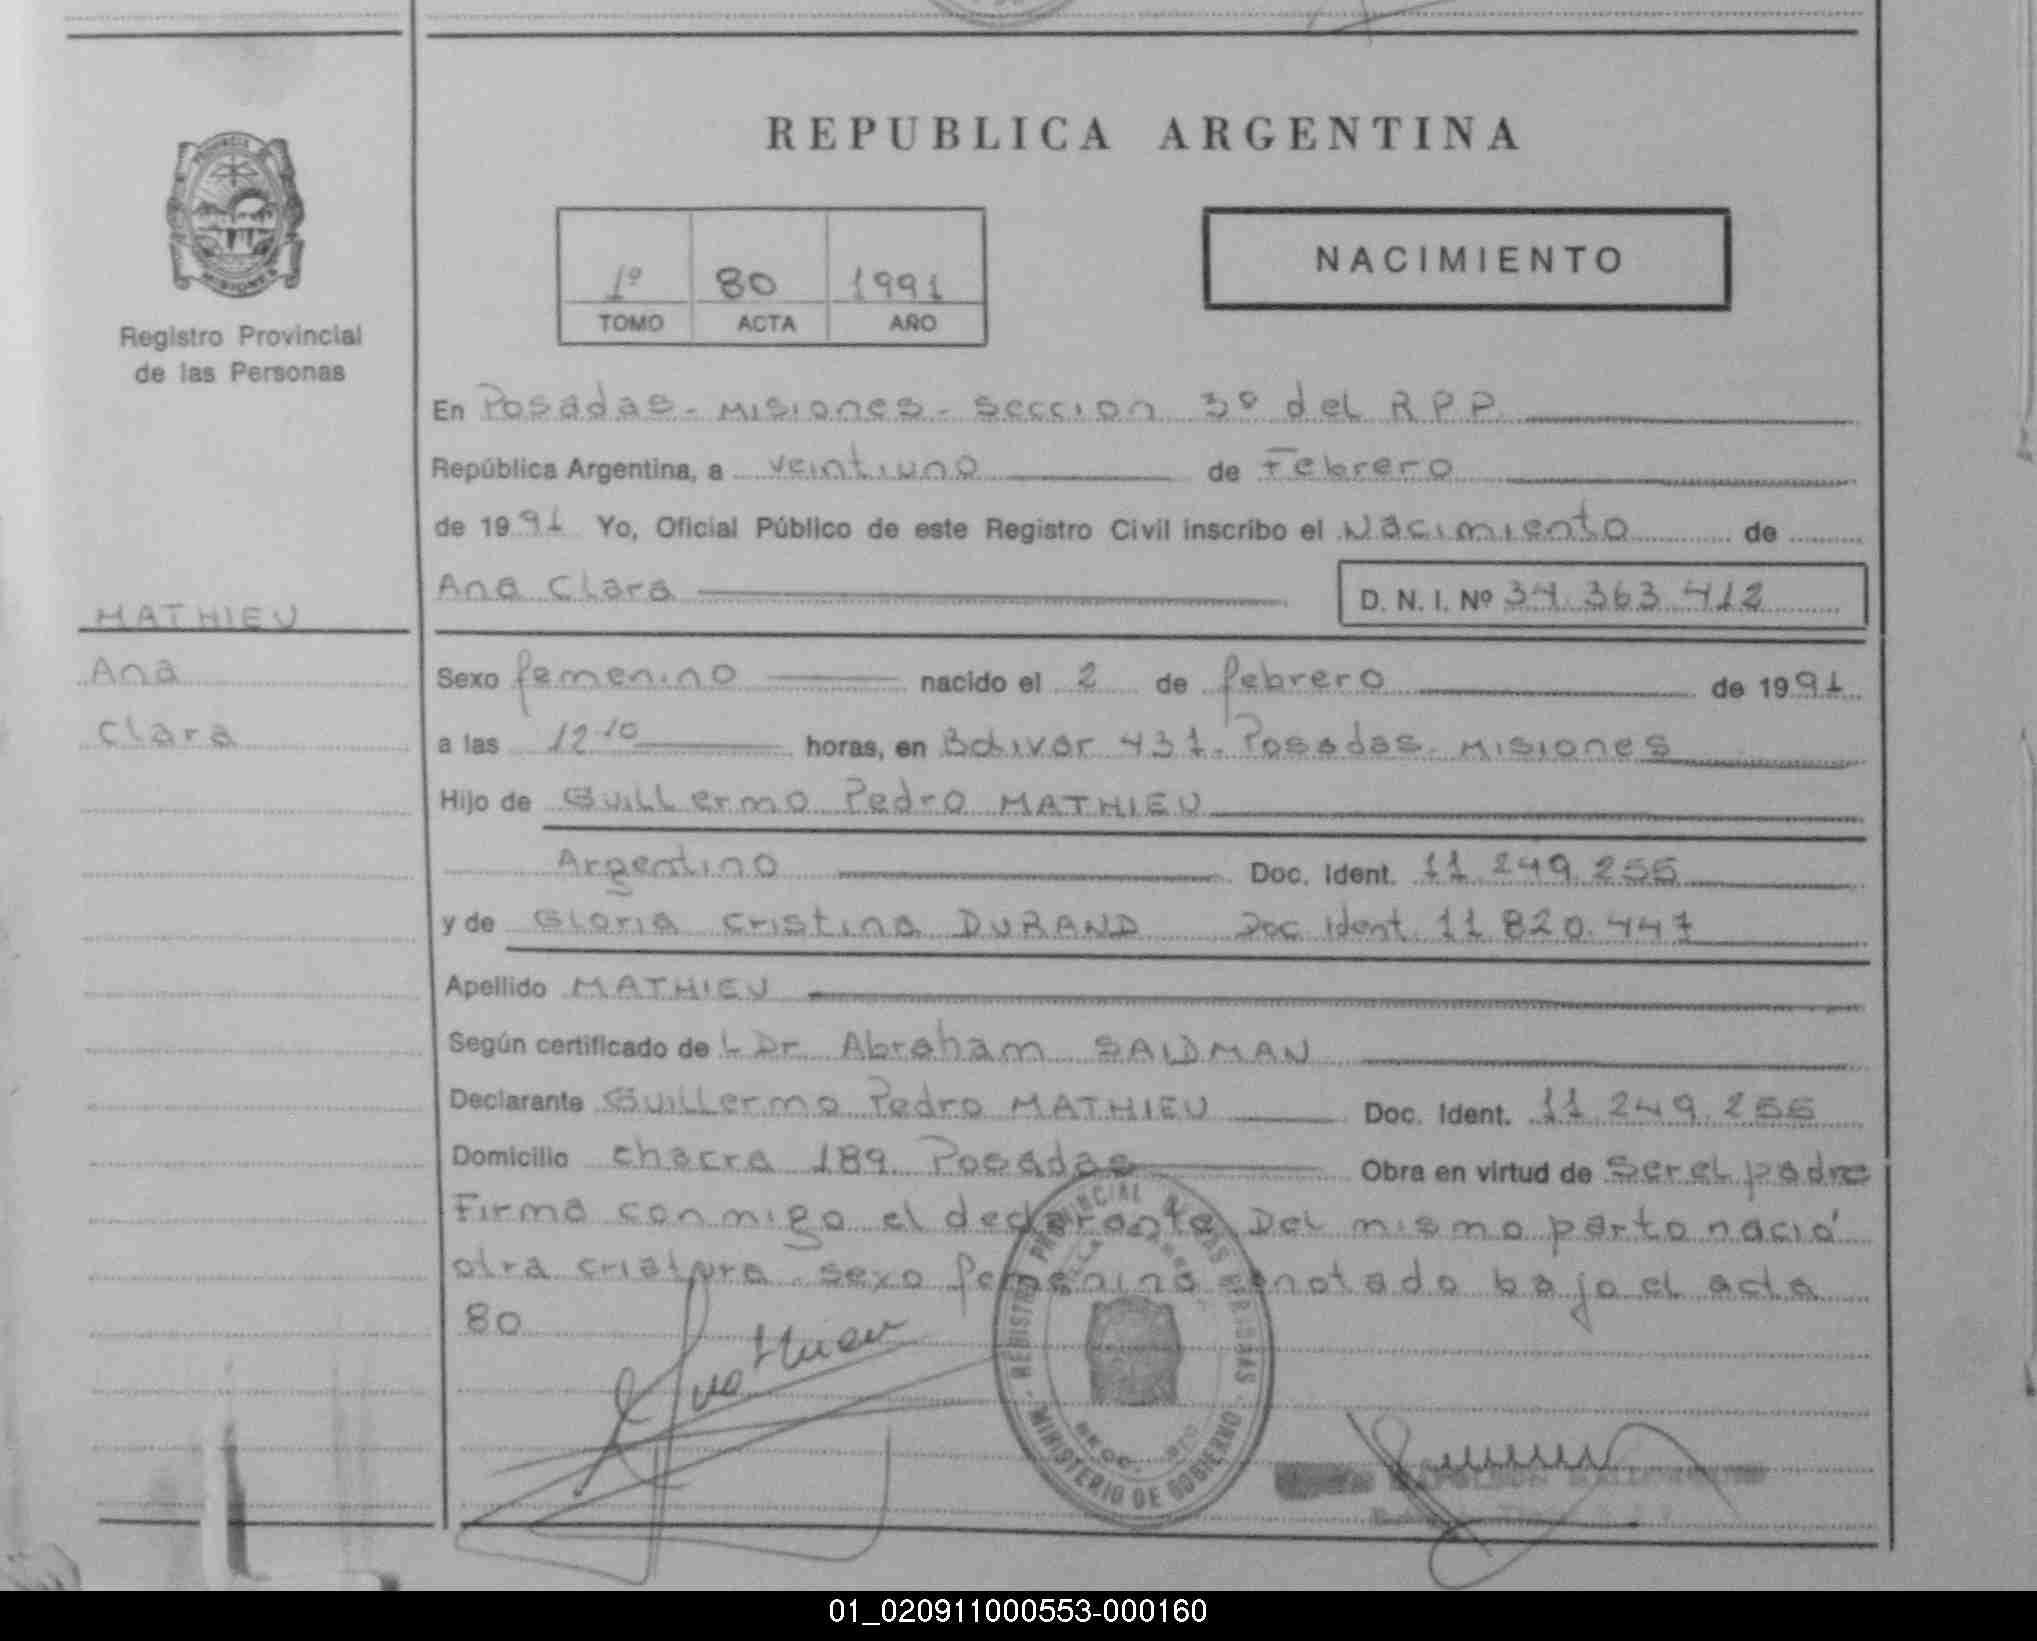 REPUBLICA ARGENTINA
NACIMIENTO
1º 80 1991
TOMO ACTA AÑO
Registro Provincial
de las Personas
En Posadas - Misiones - Seccion 3º del R P P
República Argentina, a veintiuno de Febrero
de 1991 Yo, Oficial Público de este Registro Civil inscribo el Nacimiento de
Ana Clara D. N. I. Nº 34.363.412
MATHIEU
Ana
Clara
Sexo femenino nacido el 2 de febrero de 1991
a las 12 10 horas, en Bolivar 431. Posadas - Misiones
Hijo de Guillermo Pedro MATHIEU
Argentino Doc. Ident. 11.249.255
y de Gloria Cristina DURAND Doc Ident. 11.820.447
Apellido MATHIEU
Según certificado de L Dr Abraham SAIDMAN
Declarante Guillermo Pedro MATHIEU Doc. Ident. 11.249.255
Domicilio Chacra 189 Posadas Obra en virtud de Ser el padre
Firma conmigo el declarante Del mismo parto nació
otra criatura sexo femenino anotado bajo el acta
80
REGISTRO PROVINCIAL DE LAS PERSONAS
MINISTERIO DE GOBIERNO
01_020911000553-000160